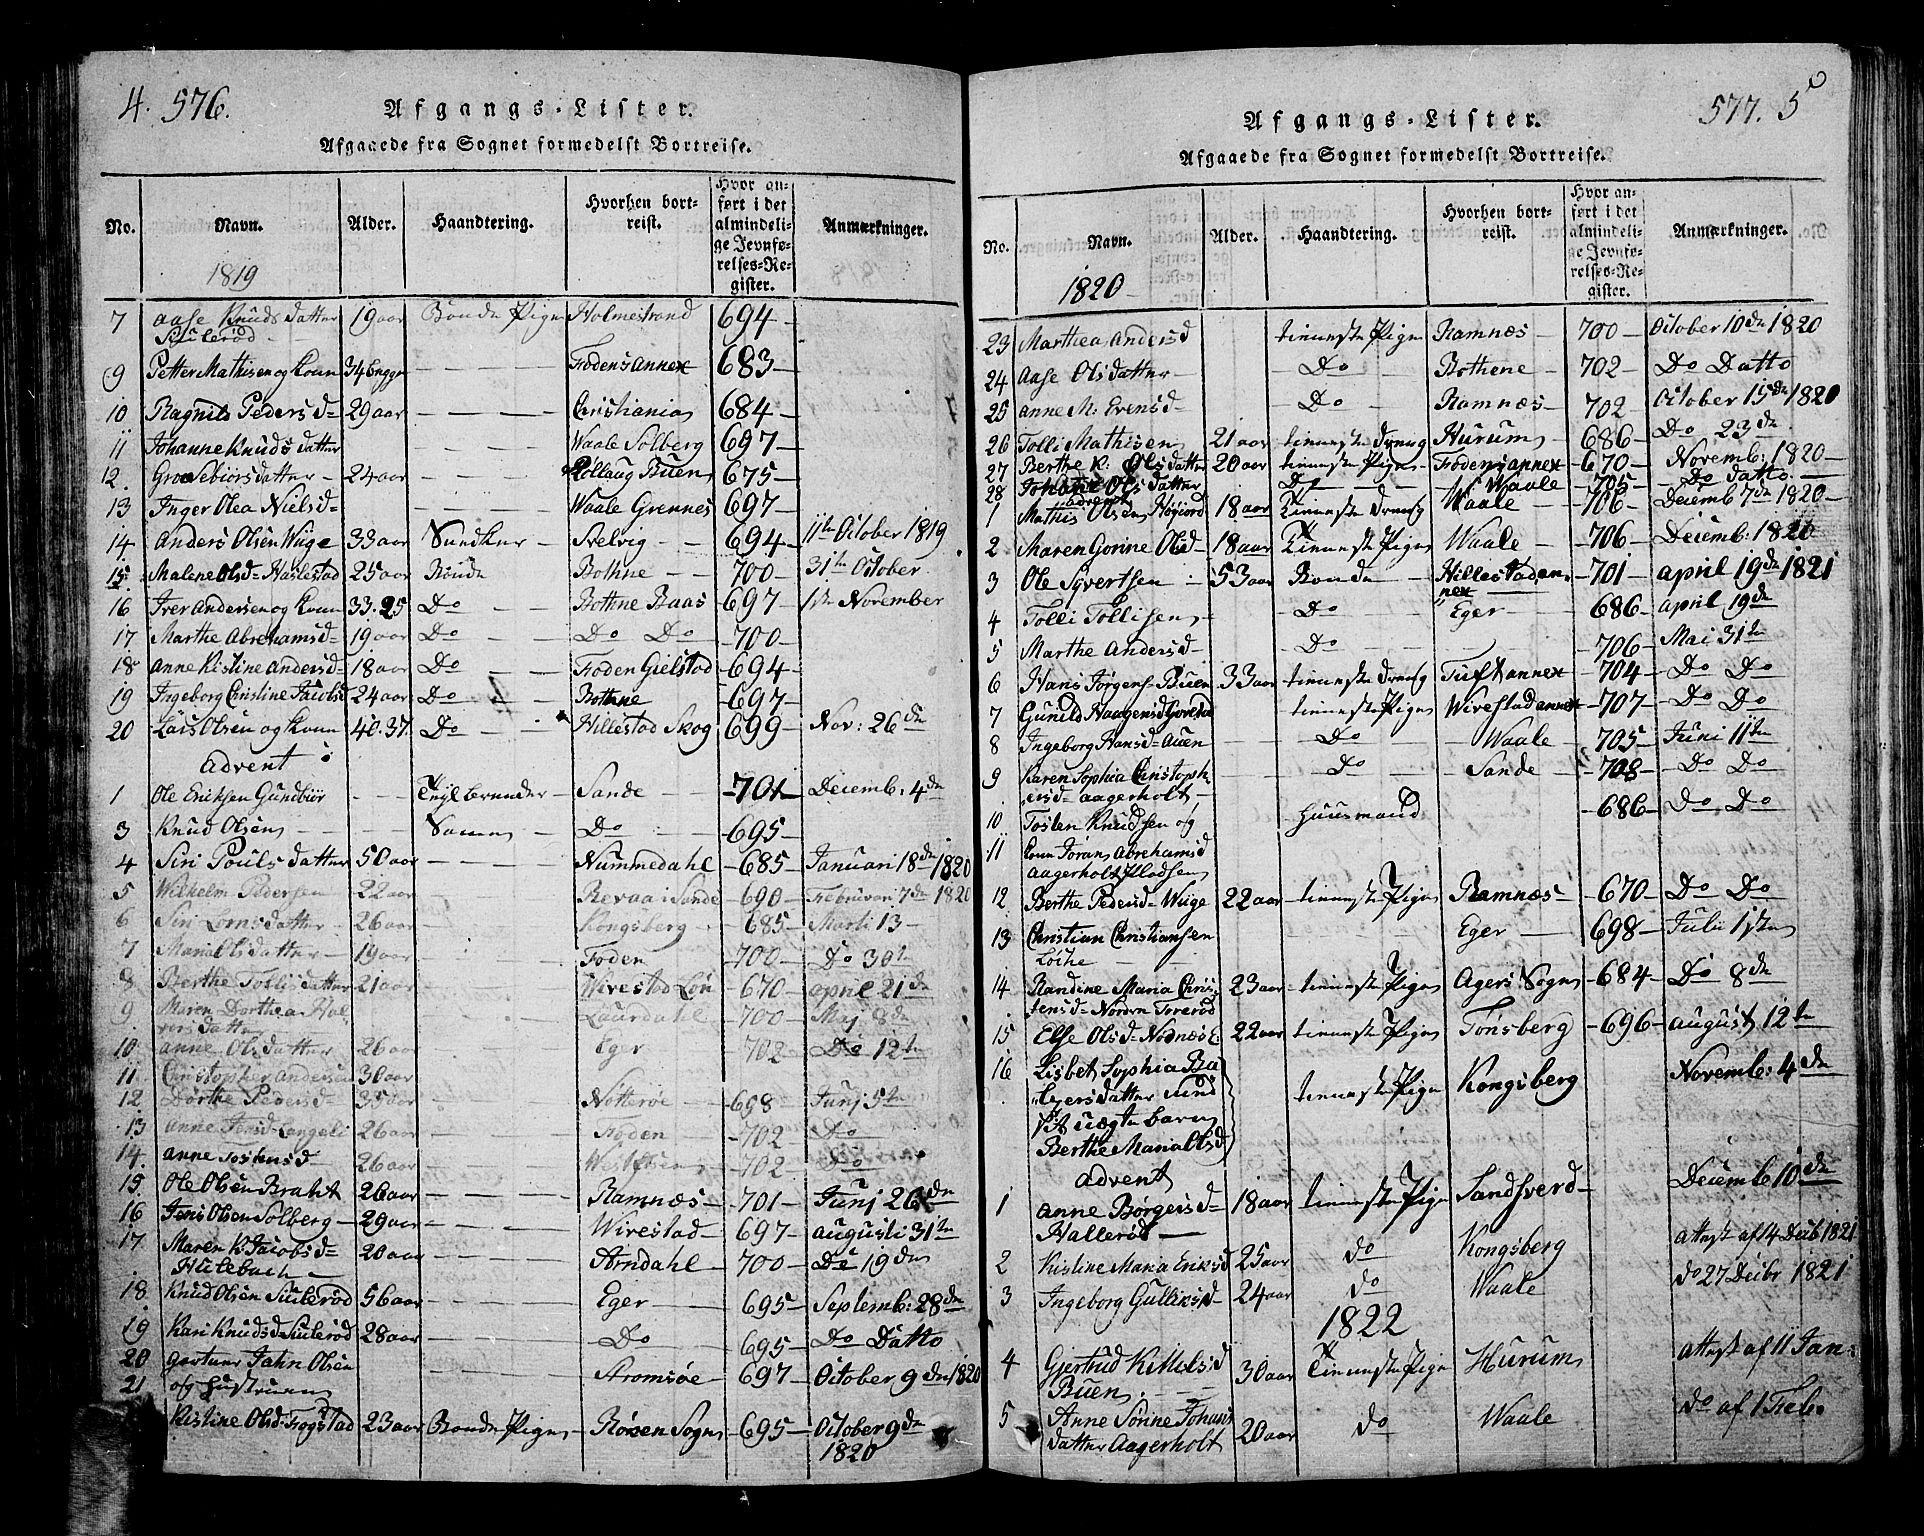 4. 576.
Afgangs-Lister.
Afgaaede fra Sognet formedelst Bortreise.
No. Navn. Alder. Haandtering. Hvorhen bortreist. Hvor anført i det almindelige Jevnførelses-Register. Anmærkninger.
1819
7 Aase Knuds datter 19 aar Bonde Pige Holmestrand 694
9 Petter Mathisen og Kone 34 Fodens Annex 683
10 Ragnild Peders d= 29 aar Christiania 684
11 Johanne Knuds datter Waale Solberg 697
12. datter 24 aar Buen 675
13 Inger Olea Niels d= Waale Grennes 697
14 Anders Olsen Wiige 33 aar Svelvig 694 11te October 1819
15 Malene Olsd= Haslestad 25 aar Bonde Bothne 700 31te October
16 Iver Andersen og Kone 33.25 Do Bothne Baas 697 1ste November
17 Marthe Abrahams d= 19 aar Do Do Do 700
18 Anne Kistine Anders d= 18 aar Do Foden Gielstad 694
19 Ingeborg Christine Jacobsd 24 aar Do Bothne 697
20 Lars Olsen og Kone 40.37 Do Hillestad Skog 699 Nov: 26de
Advent
1 Ole Eriksen Gundbiør Sande 701 Decemb: 4de
3 Knud Olsen Do 695
4 Siri Pouls datter 50 aar Nummedahl 685 Januari 18de 1820
5 Wilhelm Pedersen 22 aar Revaa i Sande 690 Februari 7de 1820
6 Siri datter 26 aar Kongsberg 685 Marti 13
7 Maria Ols datter 19 aar Foden 700 Do 30te
8 Berthe Tollis datter 21 aar Wirestad 670 April 21de
9 Maren Dorthea Halvors datter Laurdahl 700 Maj 8de
10 Anne Ols datter 26 aar Eger 702 Do 12te
11 Christopher Andersen 30 aar
12 Dorthe Peders d= 35 aar Nøtterøe 698 Junj 5te
13 Anne 26 aar Foden 702 Do
14. Anne Tostens d 26 aar 702 Do
15. Ole Olsen Braht 26 aar Ramnæs 701 Junj 26de
16 Jens Olsen Solberg 29 aar Wirestad 697 Augusti 31te
17. Maren K. Jacobs d= Hulebach 20 aar Arndahl 700 Do 19de
18 Knud Olsen Siulerød 56 aar Eger 695 Septemb: 28de
19 Kari Knuds d. Siulerød 28 aar Do 695 Do Datto
20 Gartner Jahn Olsen
21 og Hustrue Strømsøe 697 October 9de 1820
Kistine Olsd: Fogstad 23 aar Bonde Pige Sogn 695 October 9de 1820
577. 5
Afgangs-Lister.
Afgaaede fra Sognet formedelst Bortreise.
No. Navn. Alder. Haandtering. Hvorhen bortreist. Hvor anført i det almindelige Jevnførelses-Register. Anmærkninger.
1820
23 Marthea Anders d tieneste Pige Ramnæs 700 October 10de 1820
24 Aase Ols datter Do Bothene 702 Do Datto
25 Anne M: Evens d Do Ramnæs 702 October 15de 1820
26 Tolli Mathisen 21 aar tieneste dreng Hurum 686 Do 23de
27 Berthe K: Ols datter 20 aar tieneste Pige Fodens annex 670 Novemb: 1820
28 Johane Ols datter Do Waale 705 Do Datto
1 Mathis Olsen Høgiord 18 aar Tieneste dreng Waale 706 Decemb 7de 1820
2 Maren Gorine Olsd 18 aar Tieneste Pige Waale 706 Decemb: 1820
3 Ole Syvertsen 53 aar Bonde Hillestad annex 701 April 19de 1821
4 Tolli Tollisen Do Eger 686 April 19de
5 Marthe Anders d Do 706 Mai 31te
6 Hans Jørgens: Buen 33 aar tieneste dreng Tuft annex 704 Do Do
7 Gunild Haagensd tieneste Pige Wirestad annex 707 Do Do
8 Ingeborg Hansd= Auen Do Waale 705 Juni 11te
9 Karen Sophia Christophersd= Aagerholt Do Sande 708 Do Do
10 Tosten Knudsen og Huusmand 686 Do Do
11 Kone Joran Abrehamsd Aagerholt
12 Berthe Pedersd= Wiige 22 aar tieneste Pige Ramnæs 670 Do Do
13 Christian Christiansen Eger 698 Juli 1ste
14 Randine Maria Christensd= 23 aar tieneste Pige Agers Sogn 684 Do 8de
15 Else Olsd= Nødnæs E: 22 aar tieneste Pige Tønsberg 696 August 12te
16 Lisbet Sophia datter med sit uægte barn Berthe Maria Olsd tieneste Pige Kongsberg Novemb: 4de
Advent
1 Anne Børgers d= Hallerød 18 aar tieneste Pige Sandsverd Decemb 10de
2 Kistine Maria Eriksd 25 aar do Kongsberg attest af 14 Decb 1821
3 Ingeborg Gulliksd 24 aar do Waale do 27 Decbr 1821
1822
4 Gjertrud Kittilsd Buen 30 aar Tieneste Pige Hurum attest af 11 Jan:
5 Anne Sørine Johans datter Aagerholt 20 aar do Waale do af 1 Feb.